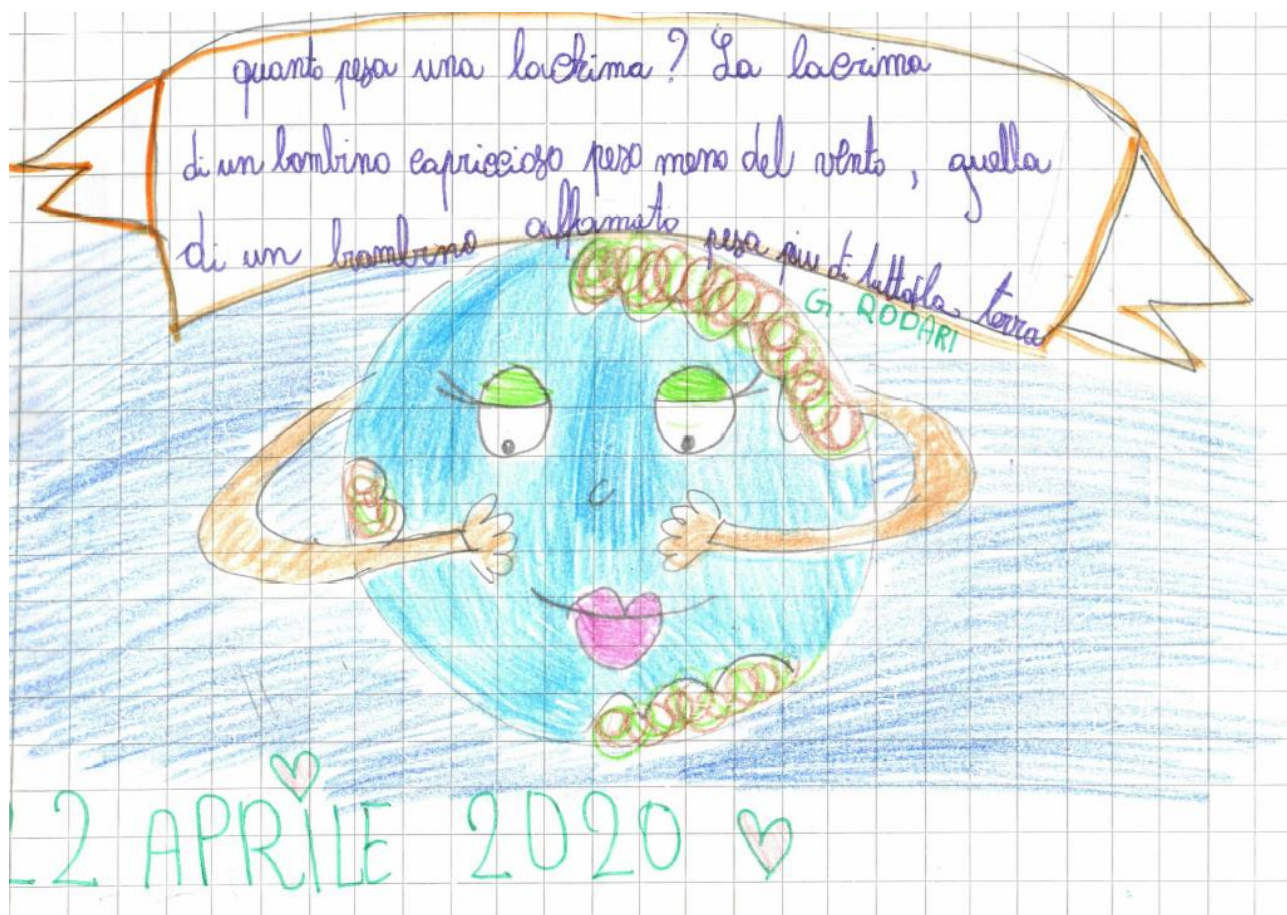 quanto pesa una lacrima? La lacrima
di un bambino capriccioso pesa meno del vento, quella
di un bambino affamato pesa più di tutta la terra
G. RODARI
22 APRILE 2020